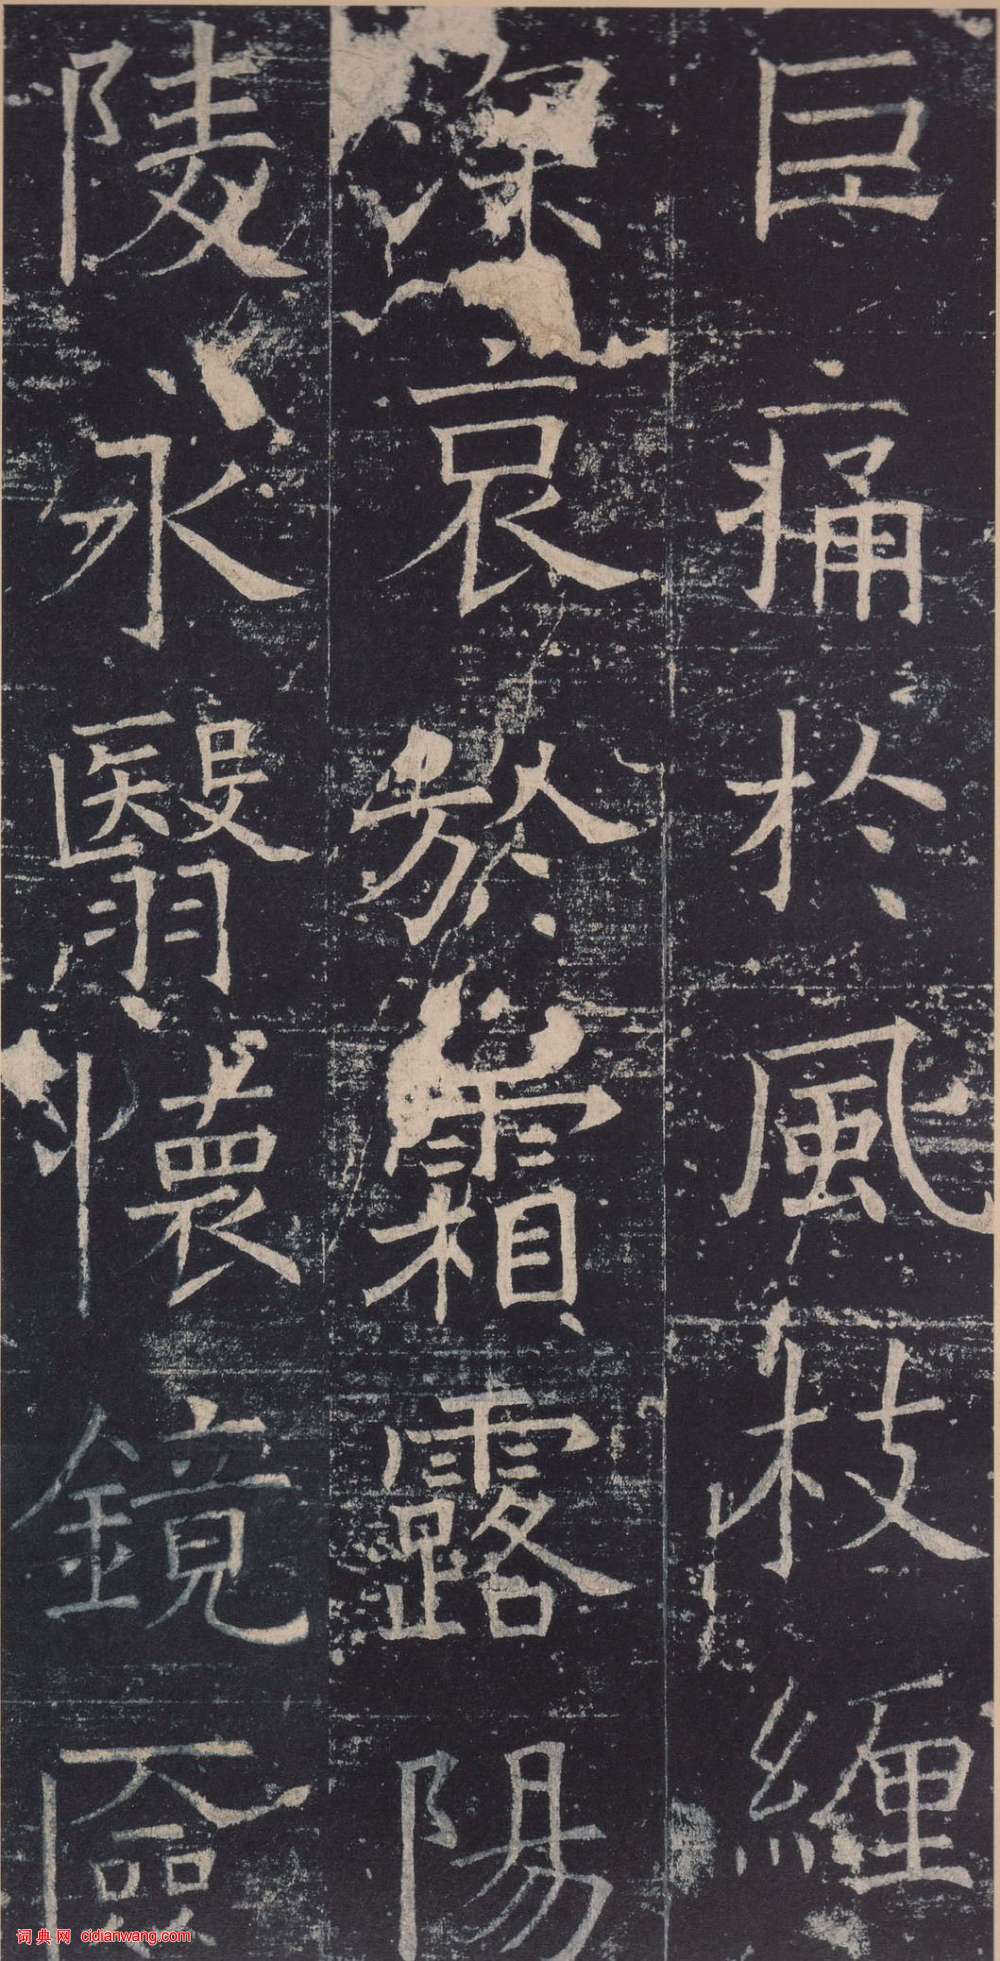 巨痛於風枝纏
深哀於霜露陽
陵永翳懷鏡匳
词典网 cidianwang.com